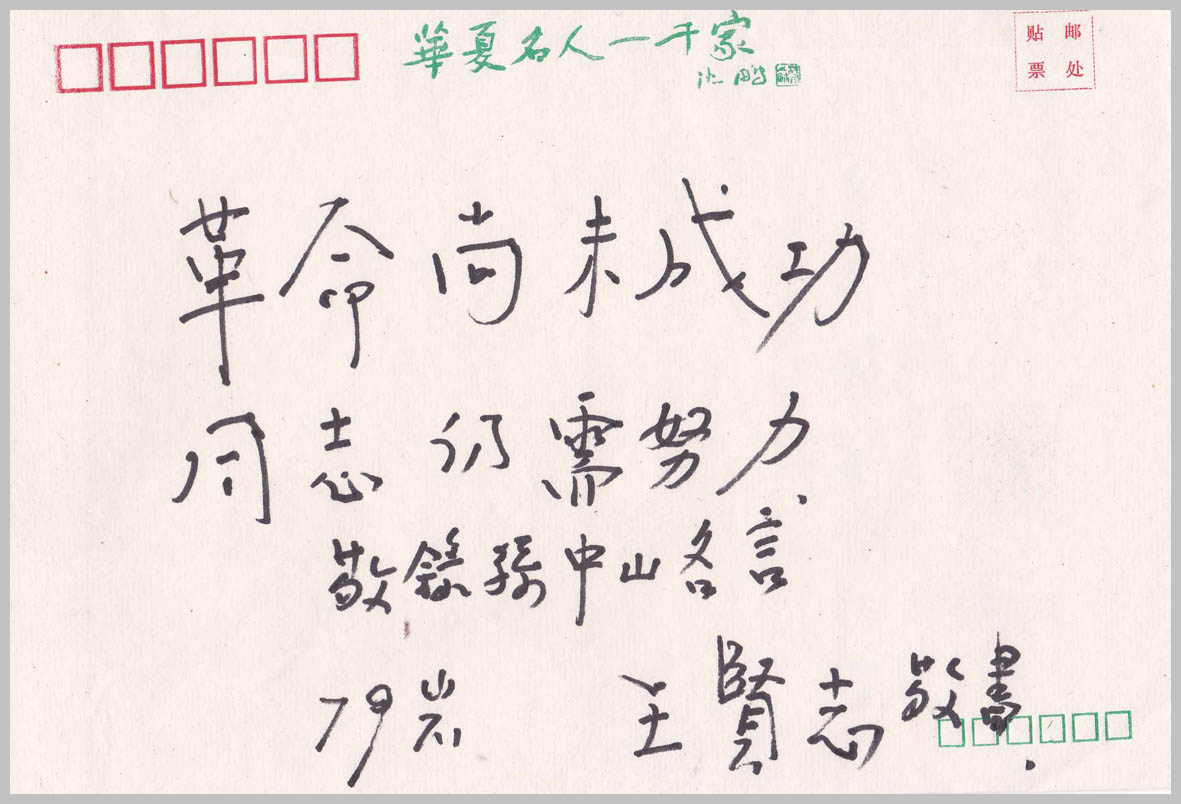 華夏名人一千家
沈鹏
贴 邮
票 处
革命尚未成功
同志仍需努力
敬錄孫中山名言
79 王賢志敬書